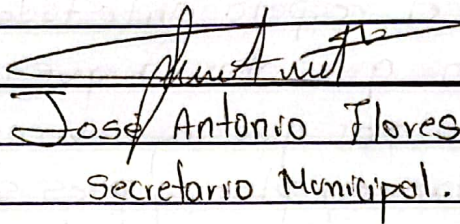 José Antonio Flores
Secretario Municipal.